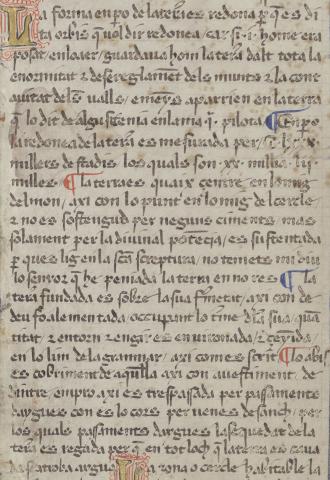 La forma empo de la terra es redona p q es di
ta orbis q vol dir redonea / car si · i · home era
posat en l'aer / guardava hom la terra dalt tota la
enormitat z desereglament dels munts z la conc
avitat dels valls / e menys aparrien en la terra
q lo dit de algu s'tenia en la ma · i · pilota ¶ Empo
la redonea de la terra es mesurada per /
millers de stadis los quals son · xx · milia ·
milles ¶ La terra es quaix centre en lo mig
del mon / axi con lo punt en lo mig del cercle
z no es sostengud per neguns ciments mas
solament per la divinal potencia / es sustentada
p que s lig en la scra scriptura / no temets mi diu
lo senyor q he penjada la terra en no res ¶ La
terra fundada es sobre la sua fermetat / axi con de
tcu foalementada / occupant lo dia sua quan
titat z entorn z engir es environada / z
en lo lim de la gran mar / axi com es scrit ¶ lo abis
es cobriment de aquella axi con avestiment · de
dintre empro axi es trespassada per passaments
daygues con es lo cors per venes de sanch / per
los quals passaments daygues la sequedat de la
terra es regada per q en tot loch q la terra es cava
da s atroba aygua La zona o cercle habitable la